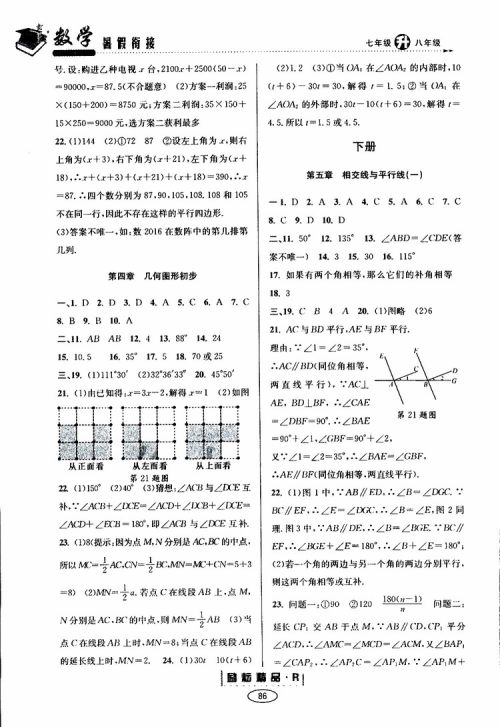 数学 暑假衔接
七年级 升 八年级
号.设:购进乙种电视x台,2100x+2500(50-x)
=90000,x=87.5(不合题意) (2)方案一利润:25
×(150+200)=8750元;方案二利润:35×150+
15×250=9000元,选方案二获利最多
22.(1)144 (2)①72 87 ②设左上角为x,则右
上角为(x+3),右下角为(x+21),左下角为(x+
18),∴x+(x+3)+(x+21)+(x+18)=390,∴x
=87.∴四个数分别为87,90,105,108. 108和105
不在同一行,因此不存在这样的平行四边形.
(3)答案不唯一,如:数2016在数阵中的第几排第
几列.
第四章 几何图形初步
一、1. D 2. D 3. D 4. A 5. C 6. A 7. C
8. B 9. B 10. A
二、11. AB AB 12. 4 13. 88° 14. 24
15. 10.5 16. 35° 17. 5 18. 70或25
三、19. (1)111°30′ (2)32°36′33″ 20. 45°50′
21. (1)由已知得:x=3x-2,解得x=1 (2)如图
从正面看 从左面看 从上面看
第21题图
22. (1)150° (2)40° (3)猜想:∠ACB与∠DCE互
补.∵∠ACB+∠DCE=∠ACD+∠DCB+∠DCE=
∠ACD+∠ECB=180°,即∠ACB与∠DCE互补.
23. (1)8(提示:因为点M,N分别是AC,BC的中点,
所以MC=1/2AC,CN=1/2BC,MN=MC+CN=5+3
=8) (2)MN=1/2a.若点C在线段AB上,点M,
N分别是AC,BC的中点,则MN=1/2AB (3)当
点C在线段AB上时,MN=8;当点C在线段AB
的延长线上时,MN=2. 24. (1)30t 10(t+6)
(2)1.2 (3)①当OA₁在∠AOA₂的内部时,10
(t+6)-30t=30,解得t=1.5;②当OA₁在
∠AOA₂的外部时,30t-10(t+6)=30,解得t=
4.5.所以t=1.5或4.5.
下册
第五章 相交线与平行线(一)
一1. D 2. A 3. A 4. C 5. A 6. C 7. C
8. C 9. D 10. D
二、11. 50° 12. 135° 13. ∠ABD=∠CDE(答
案不唯一) 14. 3 15. 30 16. 115°
17. 如果有两个角相等,那么它们的补角相等
18. 3
三、19. C B 4 A 20. (1)图略 (2)6
21. AC与BD平行,AE与BF平行.
理由:∵∠1=∠2=35°,
∴AC∥BD(同位角相等,
两直线平行),∵AC⊥
AE,BD⊥BF,∴∠CAE
=∠DBF=90°.∴∠BAE
E F C D A B G
第21题图
=90°+∠1,∠GBF=90°+∠2,
又∵∠1=∠2=35°,∴∠BAE=∠GBF,
∴AE∥BF(同位角相等,两直线平行).
22. (1)图1中,∵AB∥ED,∴∠B=∠DGC.∵
BC∥EF,∴∠E=∠DGC,∴∠B=∠E,图2同
理.图3中,∵AB∥DE,∴∠B=∠BGE.∵BC∥
EF,∴∠BGE+∠E=180°,∴∠B+∠E=180°;
(2)若一个角的两边与另一个角的两边分别平行,
则这两个角相等或互补.
23. 问题一:①90 ②120 180(n-1)/n 问题二:
延长CP₁交AB于点M,∵AB∥CD,CP₁平分
∠ACD,∴∠AMC=∠MCD=∠ACM,又∠BAP₁
=∠CAP₂,∴∠AP₂C=∠AP₁M.∵∠AP₁M+
励耘精品·R
86